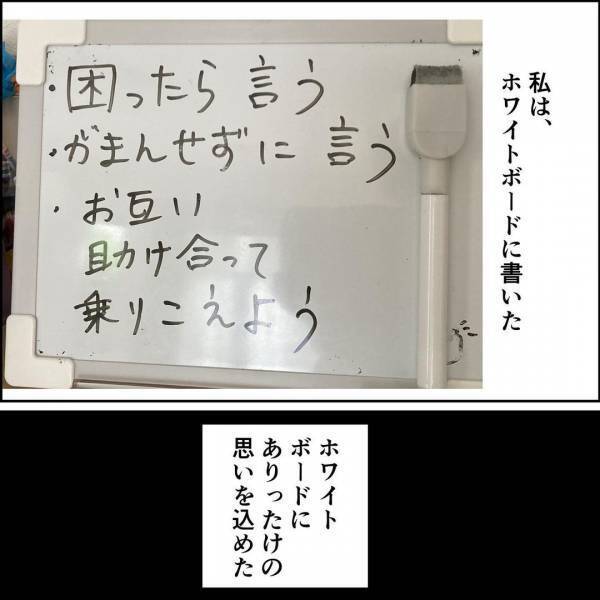 私は、
ホワイトボードに書いた
・困ったら言う
・がまんせずに言う
・お互い
助け合って
乗りこえよう
ホワイト
ボードに
ありったけの
思いを込めた